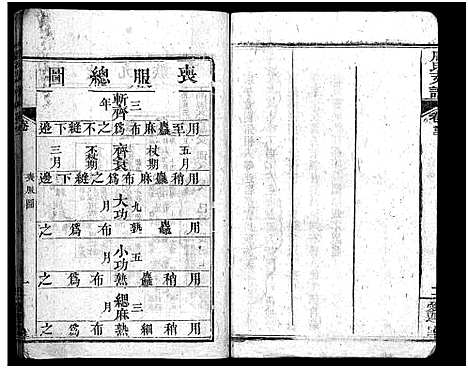 喪服總圖
斬齊
三年
用至麤麻布為之不縫下邊
五月
杖期
齊衰
不杖期
三月
用稍麤麻布為之縫下邊
大功
九月
用麤熟布為之
小功
五月
用稍麤熟布為之
緦麻
三月
用稍細熟布為之
卷
喪服圖
一